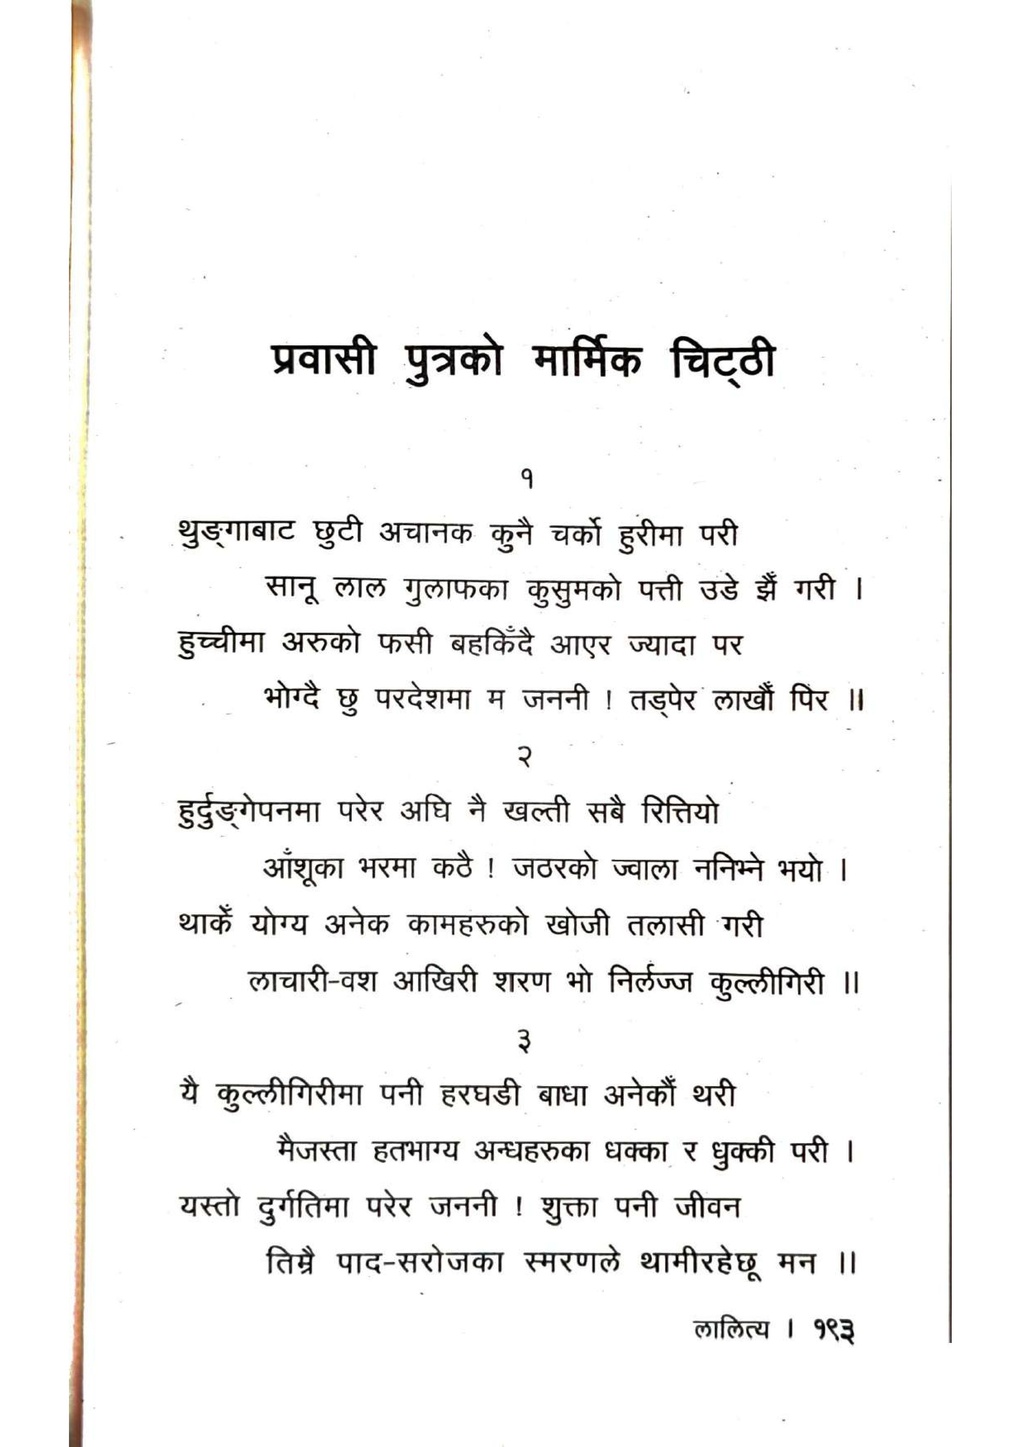 प्रवासी पुत्रको मार्मिक चिट्ठी
१
थुङ्गाबाट छुटी अचानक कुनै चर्को हुरीमा परी
सानू लाल गुलाफका कुसुमको पत्ती उडे झैँ गरी ।
हुच्चीमा अरुको फसी बहकिँदै आएर ज्यादा पर
भोग्दै छु परदेशमा म जननी ! तड्पेर लाखौँ पिर ॥
२
हुर्दुङ्गेपनमा परेर अघि नै खल्ती सबै रित्तियो
आँशूका भरमा कठै ! जठरको ज्वाला ननिभ्ने भयो ।
थाकेँ योग्य अनेक कामहरुको खोजी तलासी गरी
लाचारी-वश आखिरी शरण भो निर्लज्ज कुल्लीगिरी ॥
३
यै कुल्लीगिरीमा पनी हरघडी बाधा अनेकौँ थरी
मैजस्ता हतभाग्य अन्धहरुका धक्का र धुक्की परी ।
यस्तो दुर्गतिमा परेर जननी ! शुक्ता पनी जीवन
तिम्रै पाद-सरोजका स्मरणले थामीरहेछू मन ॥
लालित्य । १९३